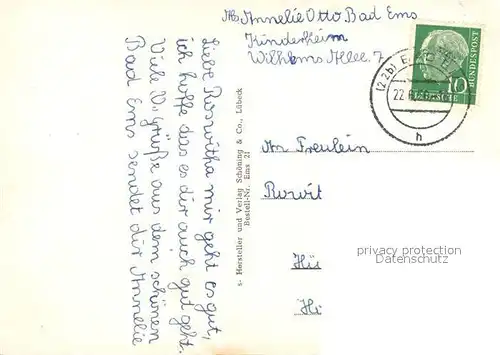 Abs. Annelie Otto Bad Ems
Kinderheim
Wilhelms Allee. 7
Liebe Roswitha mir geht es gut,
ich hoffe das es dir auch gut geht.
Viele Grüße aus dem schönen
Bad Ems sendet dir Annelie
s- Hersteller und Verlag Schöning & Co., Lübeck
Bestell-Nr. Ems 21
DEUTSCHE BUNDESPOST
10
(22b)
22
h
An Freulein
privacy protection
Datenschutz